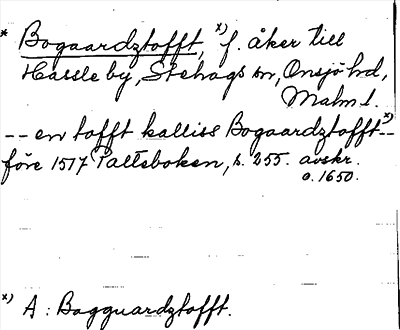 * Bogaardztofft, x) f. åker till
Hassleby, Stehags sn, Onsjö hd,
Malm. l.
-- en tofft kalliss Bogaardztofft x) --
före 1517 Palteboken, s. 255. avskr.
o. 1650.
x) A: Bagguardztofft.